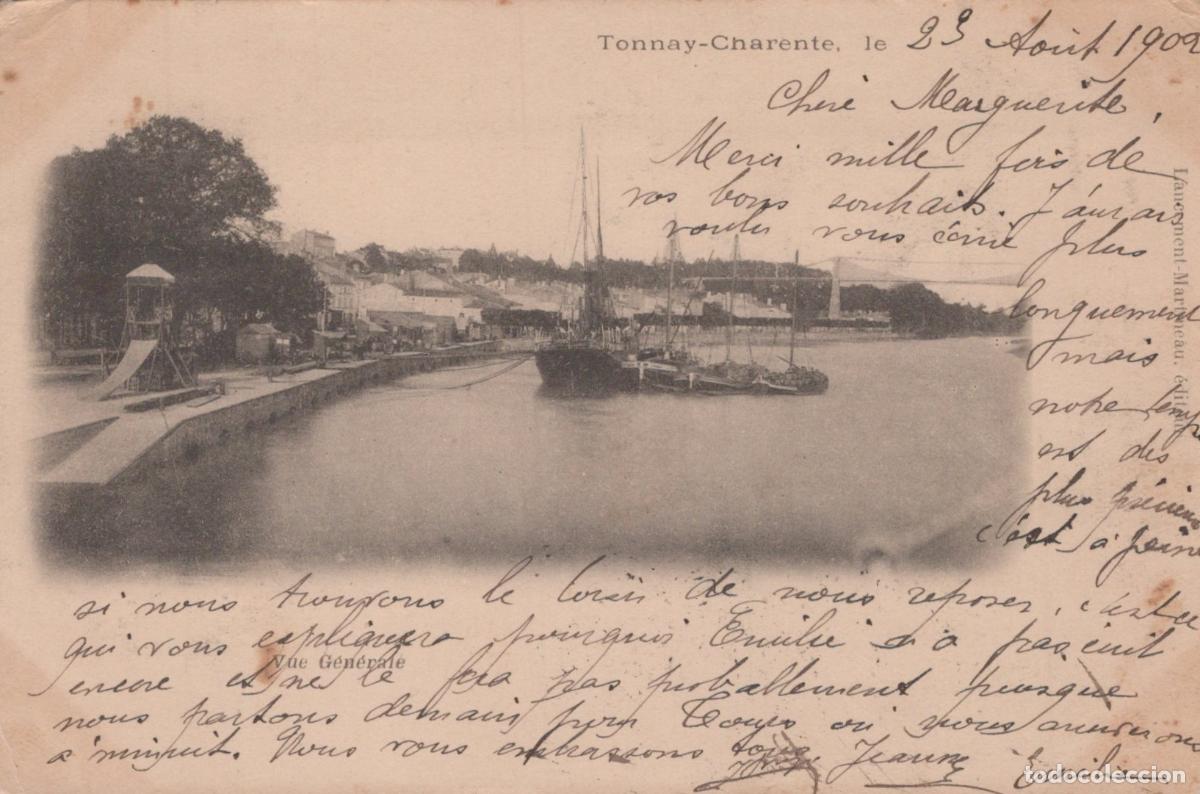 Tonnay-Charente, le 23 Août 1902
Chère Marguerite,
Merci mille fois de
vos bons souhaits. J'aurais
voulu vous écrire plus
longuement
mais
notre temps
est des
plus précieux
c'est à peine
si nous trouvons le loisir de nous reposer, c'est ce
qui vous expliquera pourquoi Emilie n'a pas écrit
encore et ne le fera pas probablement puisque
nous partons demain pour Tours où nous arriverons
à minuit. Nous vous embrassons tous
Jeanne Emilie
Vue Générale
todocoleccion